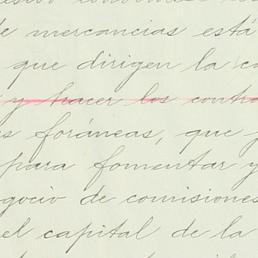 de mercancías está
que dirigen la c
y hacer los contra
s foráneas, que
para fomentar y
gocio de comisiones
el capital de la